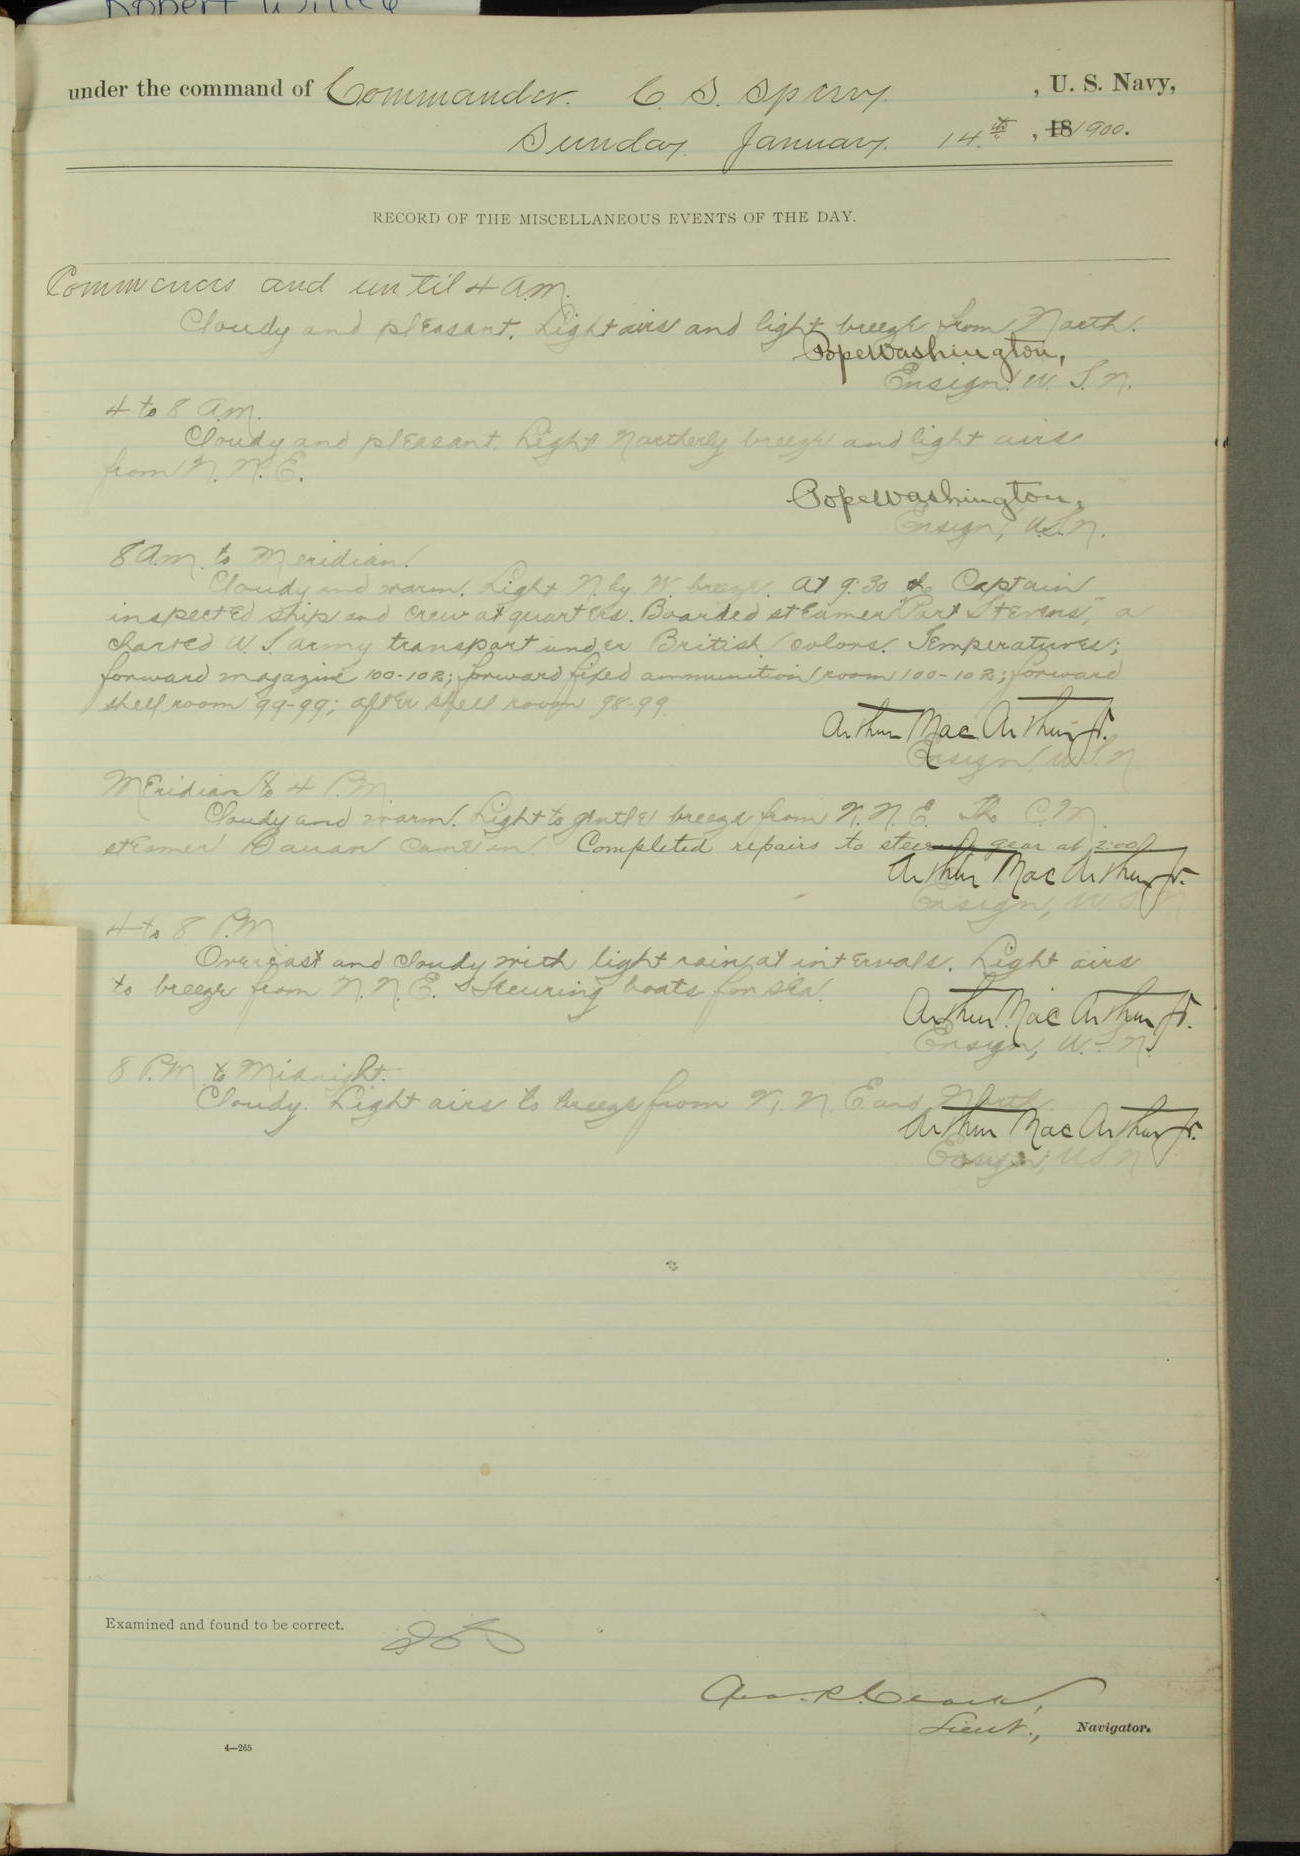 Robert Willey
under the command of Commander. C. S. Sperry. , U. S. Navy,
Sunday January. 14.th , 18 1900.
RECORD OF THE MISCELLANEOUS EVENTS OF THE DAY.
Commences and until 4 a.m.
Cloudy and pleasant. Light airs and light breeze from North.
Pope Washington,
Ensign. U. S. N.
4 to 8 a.m.
Cloudy and pleasant. Light Northerly breeze and light airs
from N. N. E.
Pope Washington,
Ensign, U.S.N.
8 a.m. to Meridian.
Cloudy and warm. Light N. by W. breeze. At 9:30 the Captain
inspected ship and crew at quarters. Boarded steamer "Port Stevens", a
charted U. S. army transport under British colors. Temperatures;
forward magazine 100-102; forward fixed ammunition room 100-102; forward
shell room 99-99; after shell room 98-99.
Arthur MacArthur Jr.
Ensign U.S.N
Meridian to 4 P.M
Cloudy and warm. Light to gentle breeze from N. N. E. The C. M.
steamer came in Completed repairs to steering gear at 2:00
Arthur MacArthur Jr.
Ensign, U S N
4 to 8 P.M
Overcast and cloudy with light rain at intervals. Light airs
to breeze from N. N. E. Securing boats for sea.
Arthur MacArthur Jr.
Ensign, U. S. N.
8 P.M. to Midnight.
Cloudy. Light airs to breeze from N. N. E. and North.
Arthur MacArthur Jr.
Ensign, U S N
Examined and found to be correct.
Geo. R. Clark,
Lieut., Navigator.
4—265